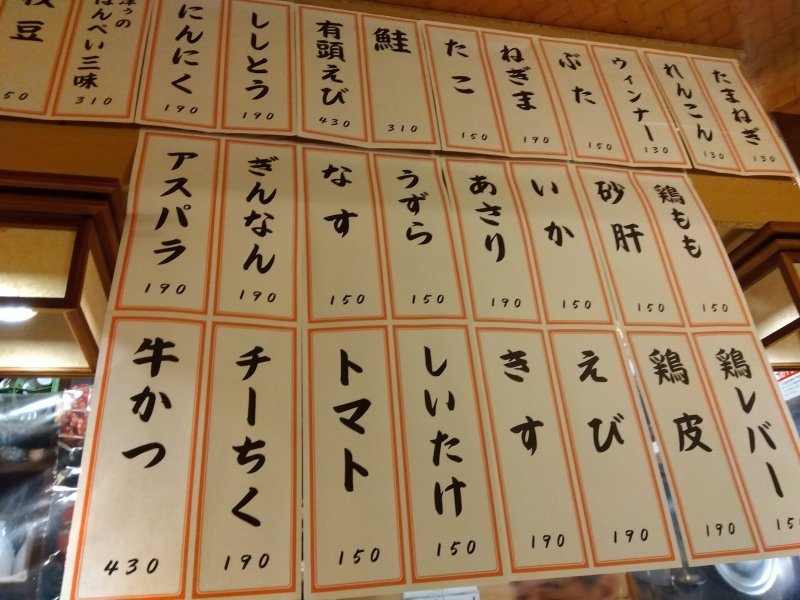 たまねぎ
130
れんこん
130
ウィンナー
130
ぶた
150
ねぎま
190
たこ
150
鮭
310
有頭えび
430
ししとう
190
にんにく
190
はんぺい三味
310
豆
50
鶏もも
150
砂肝
150
いか
150
あさり
190
うずら
150
なす
150
ぎんなん
190
アスパラ
190
鶏レバー
15
鶏皮
190
えび
190
きす
190
しいたけ
150
トマト
150
チーちく
190
牛かつ
430